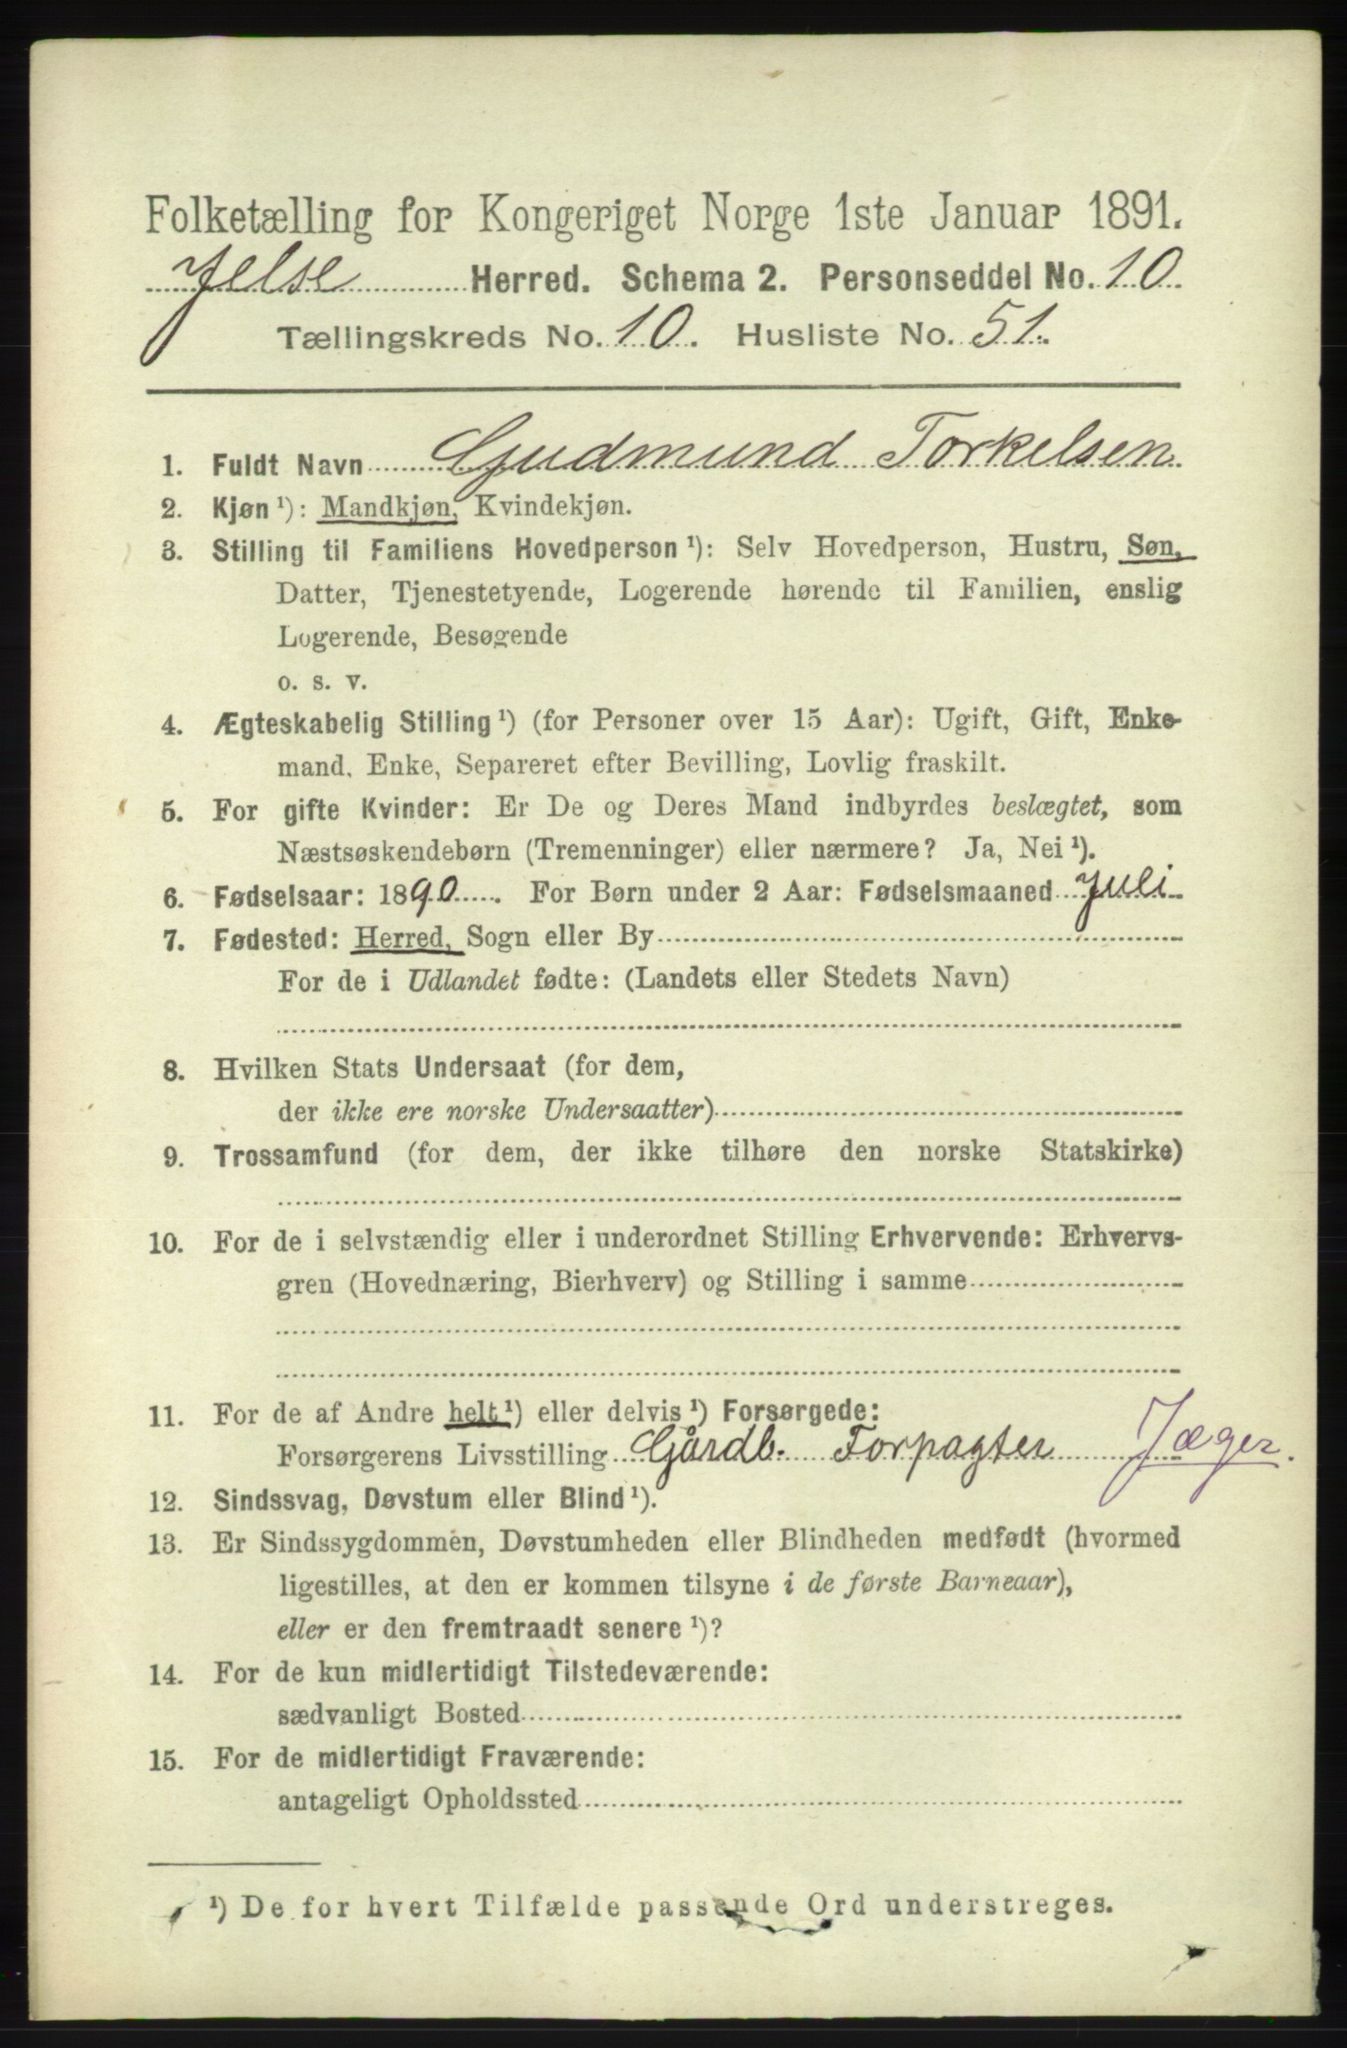 Folketælling for Kongeriget Norge 1ste Januar 1891.
Jelse Herred. Schema 2. Personseddel No. 10
Tællingskreds No. 10. Husliste No. 51.
1. Fuldt Navn Gjudmund Torkelsen
2. Kjøn ¹): Mandkjøn, Kvindekjøn.
3. Stilling til Familiens Hovedperson ¹): Selv Hovedperson, Hustru, Søn,
Datter, Tjenestetyende, Logerende hørende til Familien, enslig
Logerende, Besøgende
o. s. v.
4. Ægteskabelig Stilling ¹) (for Personer over 15 Aar): Ugift, Gift, Enke-
mand, Enke, Separeret efter Bevilling, Lovlig fraskilt.
5. For gifte Kvinder: Er De og Deres Mand indbyrdes beslægtet, som
Næstsøskendebørn (Tremenninger) eller nærmere? Ja, Nei ¹).
6. Fødselsaar: 1890. For Børn under 2 Aar: Fødselsmaaned Juli
7. Fødested: Herred, Sogn eller By
For de i Udlandet fødte: (Landets eller Stedets Navn)
8. Hvilken Stats Undersaat (for dem,
der ikke ere norske Undersaatter)
9. Trossamfund (for dem, der ikke tilhøre den norske Statskirke)
10. For de i selvstændig eller i underordnet Stilling Erhvervende: Erhvervs-
gren (Hovednæring, Bierhverv) og Stilling i samme
11. For de af Andre helt ¹) eller delvis ¹) Forsørgede:
Forsørgerens Livsstilling Gårdb. Forpagter Jæger.
12. Sindssvag, Døvstum eller Blind ¹).
13. Er Sindssygdommen, Døvstumheden eller Blindheden medfødt (hvormed
ligestilles, at den er kommen tilsyne i de første Barneaar),
eller er den fremtraadt senere ¹)?
14. For de kun midlertidigt Tilstedeværende:
sædvanligt Bosted
15. For de midlertidigt Fraværende:
antageligt Opholdssted
¹) De for hvert Tilfælde passende Ord understreges.